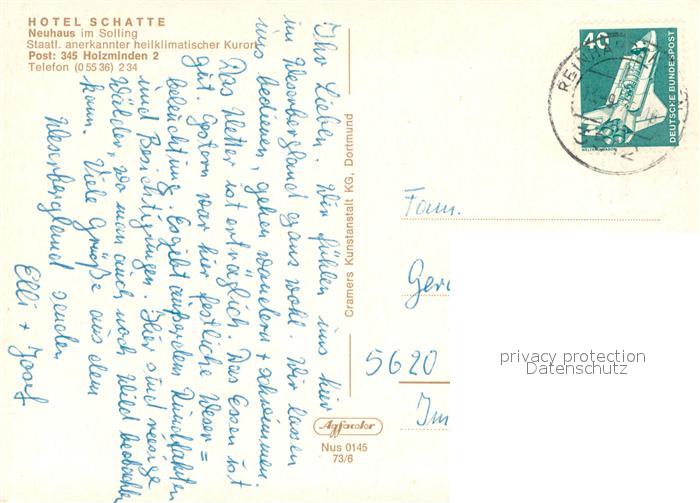 HOTEL SCHATTE
Neuhaus im Solling
Staatl. anerkannter heilklimatischer Kurort
Post: 345 Holzminden 2
Telefon (0 55 36) 2 34
Ihr Lieben. Wir fühlen uns hier
im Weserbergland ganz wohl. Wir lassen
uns bedienen, gehen wandern + schwimmen.
Das Wetter ist erträglich. Das Essen ist
gut. Gestern war hier festliche Weser=
beleuchtung. Es gibt außerdem Rundfahrten
und Besichtigungen. Hier sind riesige
Wälder, wo man auch noch Wild beobachten
kann. Viele Grüße aus dem
Weserbergland senden
Elli + Josef
Cramers Kunstanstalt KG, Dortmund
Agfacolor
Nus 0145
73/6
40
DEUTSCHE BUNDESPOST
Fam.
Ger
5620
Im
privacy protection
Datenschutz